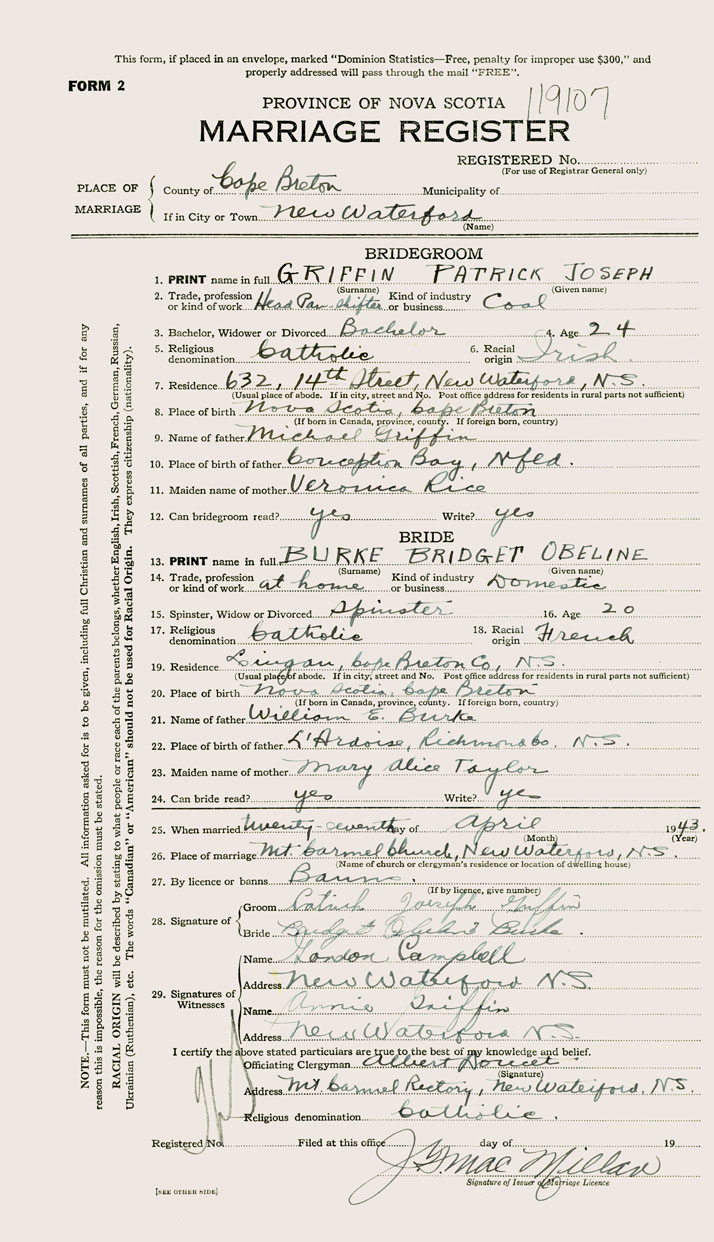 This form, if placed in an envelope, marked "Dominion Statistics—Free, penalty for improper use $300," and
properly addressed will pass through the mail "FREE".
FORM 2
119107
PROVINCE OF NOVA SCOTIA
MARRIAGE REGISTER
REGISTERED No.
(For use of Registrar General only)
PLACE OF MARRIAGE
County of Cape Breton Municipality of
If in City or Town New Waterford
(Name)
BRIDEGROOM
1. PRINT name in full GRIFFIN PATRICK JOSEPH
(Surname) (Given name)
2. Trade, profession or kind of work Head Pan-shifter Kind of industry or business Coal
3. Bachelor, Widower or Divorced Bachelor 4. Age 24
5. Religious denomination Catholic 6. Racial origin Irish.
7. Residence 632, 14th Street, New Waterford, N.S.
(Usual place of abode. If in city, street and No. Post office address for residents in rural parts not sufficient)
8. Place of birth Nova Scotia, Cape Breton
(If born in Canada, province, county. If foreign born, country)
9. Name of father Michael Griffin
10. Place of birth of father Conception Bay, Nfld.
11. Maiden name of mother Veronica Rice
12. Can bridegroom read? yes Write? yes
BRIDE
13. PRINT name in full BURKE BRIDGET OBELINE
(Surname) (Given name)
14. Trade, profession or kind of work at home Kind of industry or business Domestic
15. Spinster, Widow or Divorced Spinster 16. Age 20
17. Religious denomination Catholic 18. Racial origin French
19. Residence Lingan, Cape Breton Co, N.S.
(Usual place of abode. If in city, street and No. Post office address for residents in rural parts not sufficient)
20. Place of birth Nova Scotia, Cape Breton
(If born in Canada, province, county. If foreign born, country)
21. Name of father William E. Burke
22. Place of birth of father L'Ardoise, Richmond Co. N.S.
23. Maiden name of mother Mary Alice Taylor
24. Can bride read? yes Write? yes
25. When married day of April 1943.
(Month) (Year)
26. Place of marriage Mt. Carmel Church, New Waterford, N.S.
(Name of church or clergyman's residence or location of dwelling house)
27. By licence or banns Banns.
(If by licence, give number)
28. Signature of
Groom Patrick Joseph Griffin
Bride Bridget Burke.
29. Signatures of Witnesses
Name Gordon Campbell
Address New Waterford N.S.
Name Annie Griffin
Address New Waterford N.S.
I certify the above stated particulars are true to the best of my knowledge and belief.
Officiating Clergyman Albert Doucet
(Signature)
Address Mt. Carmel Rectory, New Waterford. N.S.
Religious denomination Catholic.
Registered No. Filed at this office day of 19
J.G. MacMillan
Signature of Issuer of Marriage Licence
[SEE OTHER SIDE]
NOTE.—This form must not be mutilated. All information asked for is to be given, including full Christian and surnames of all parties, and if for any
reason this is impossible, the reason for the omission must be stated.
RACIAL ORIGIN will be described by stating to what people or race each of the parents belongs, whether English, Irish, Scottish, French, German, Russian,
Ukrainian (Ruthenian), etc. The words "Canadian" or "American" should not be used for Racial Origin. They express citizenship (nationality).